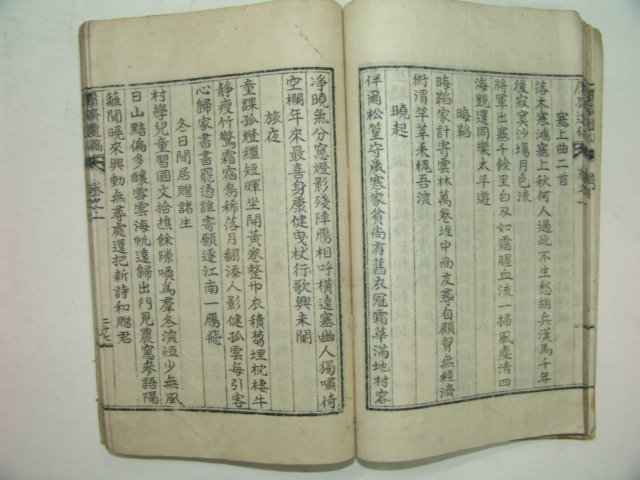 塞上曲二首
落木寒鴻塞上秋何人過此不生愁胡兵漢馬千年
後寂寞沙場月色流
將軍出塞千餘里白刃如霜腥血流一掃風塵淸四
海凱還同樂太平遊
晦鞱
晦鞱家計寄雲林萬卷堆中尚友尋自顧曾無經濟
術渭竿莘耒愧吾深
曉起
伴爾松篁守歲寒家貧尚有舊衣冠霜華滿地村容
淨曉氣分窓燈影殘陣鴈相呼橫遠塞幽人獨嘯倚
空欄年來最喜身康健曳杖行歌興未闌
旅夜
童課孤燈繼短暉坐開黃卷整巾衣積蒭埋枕棲牛
靜瘦竹驚霜宿鳥稀落月翻添人影健孤雲每引客
心歸家書書罷憑誰寄願逐江南一鴈飛
冬日閒居贈諸生
村學兒童習國文拾樵餘隊喚爲羣冬演恒少無風
日山黯偏多釀雪雲海帆遠歸出門見農窓參語隔
籬聞晚來興動無尋處還把新詩和贈君
卷之一
二十七